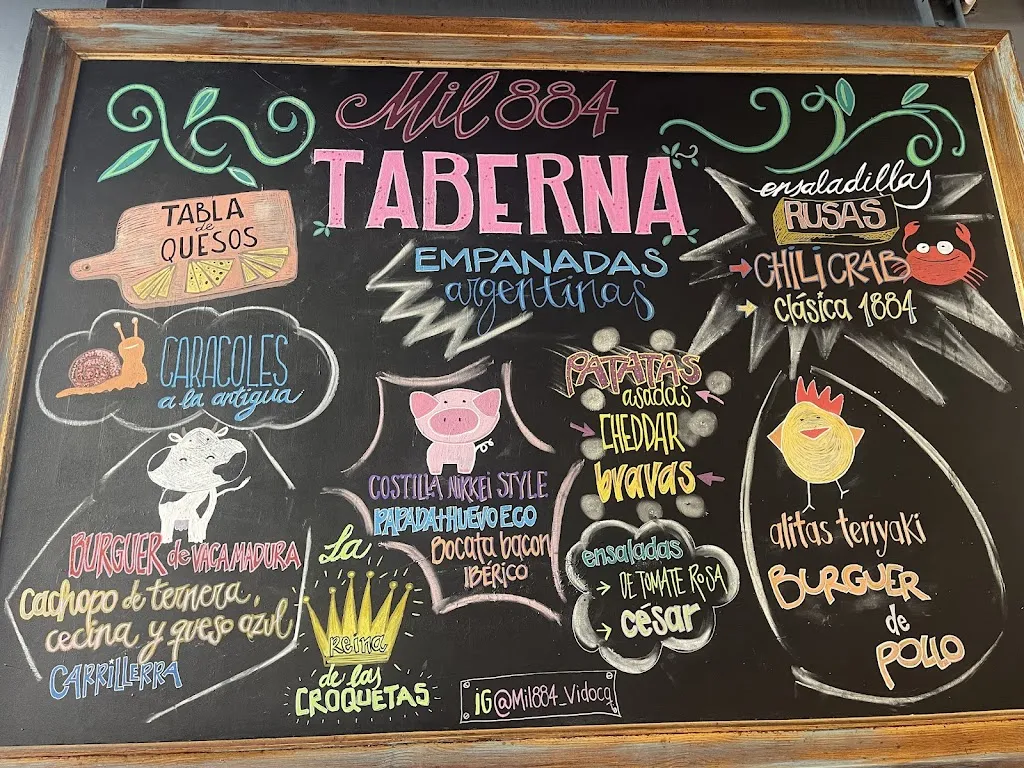 Mil 884
TABERNA
TABLA
de
QUESOS
EMPANADAS
argentinas
ensaladillas
RUSAS
CHILI CRAB
clásica 1884
CARACOLES
a la antigua
PATATAS
asadas
CHEDDAR
bravas
COSTILLA NIKKEI STYLE
PAPADA+HUEVO ECO
Bocata bacon
IBÉRICO
BURGUER de VACA MADURA
cachopo de ternera,
cecina y queso azul
CARRILLERRA
La
Reina
de las
CROQUETAS
ensaladas
DE TOMATE ROSA
césar
alitas teriyaki
BURGUER
de
POLLO
IG@Mil884_Vidocq